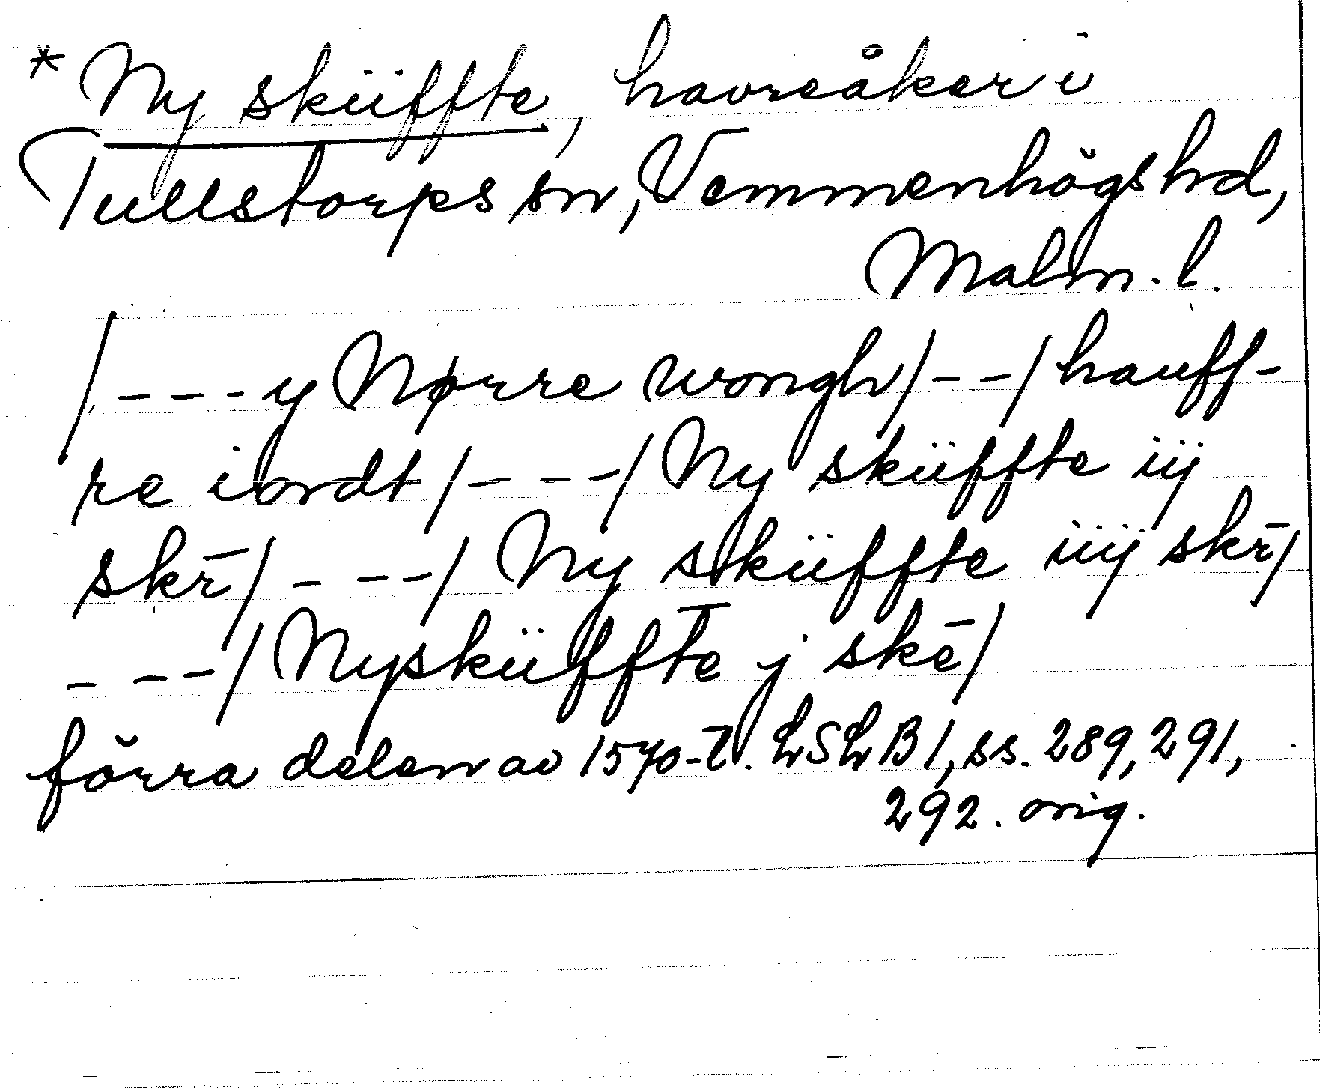 * Ny sküffte, havreåker i
Tullstorps sn, Vemmenhögs hd,
Malm. l.
/---y Nørre wongh/--/hauff-
re iordt/---/Ny sküffte iij
skr̄/---/Ny sküffte iiij skr̄/
---/Nysküffte j skē/
förra delen av 1570-t. LSLB1, ss. 289, 291,
292. orig.